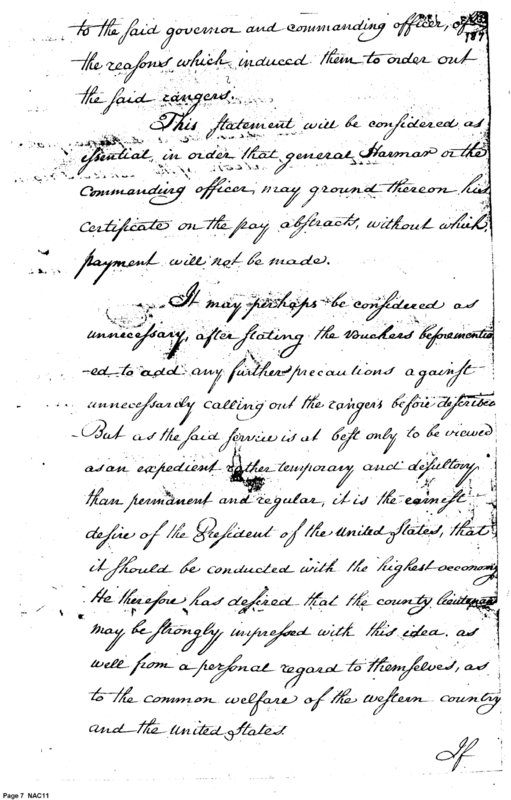 to the said governor and commanding officer, of
the reasons which induced them to order out
the said rangers.
This statement will be considered as
essential, in order that general Harmar or the
commanding officer, may ground thereon his
certificate on the pay abstracts, without which
payment will not be made.
It may perhaps be considered as
unnecessary, after stating the vouchers beforementio
-ed to add any further precautions against
unnecessarily calling out the rangers before described
But as the said service is at best only to be viewed
as an expedient rather temporary and desultory
than permanent and regular, it is the earnest
desire of the President of the United States, that
it should be conducted with the highest oeconomy
He therefore has desired that the county lieutenants
may be strongly impressed with this idea. as
well from a personal regard to themselves, as
to the common welfare of the western country
and the United States.
If
Page 7 NAC11